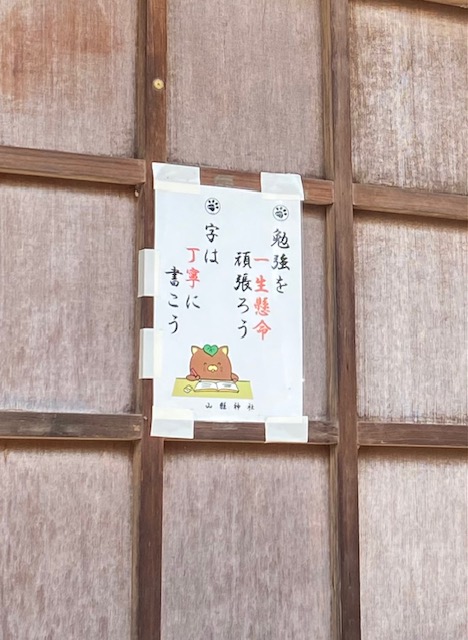 勉強を
一生懸命
頑張ろう
字は
丁寧に
書こう
山龍神社